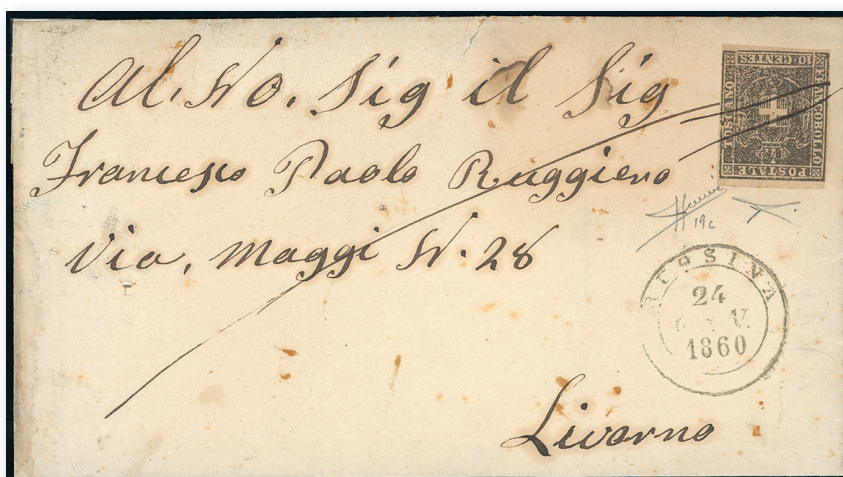 Al. No. Sig il Sig
Francesco Paolo Ruggiero
Via, Maggi N. 28
Livorno
FRANCOBOLLO
POSTALE
TOSCANO
10 CENTES
19c
24
1860